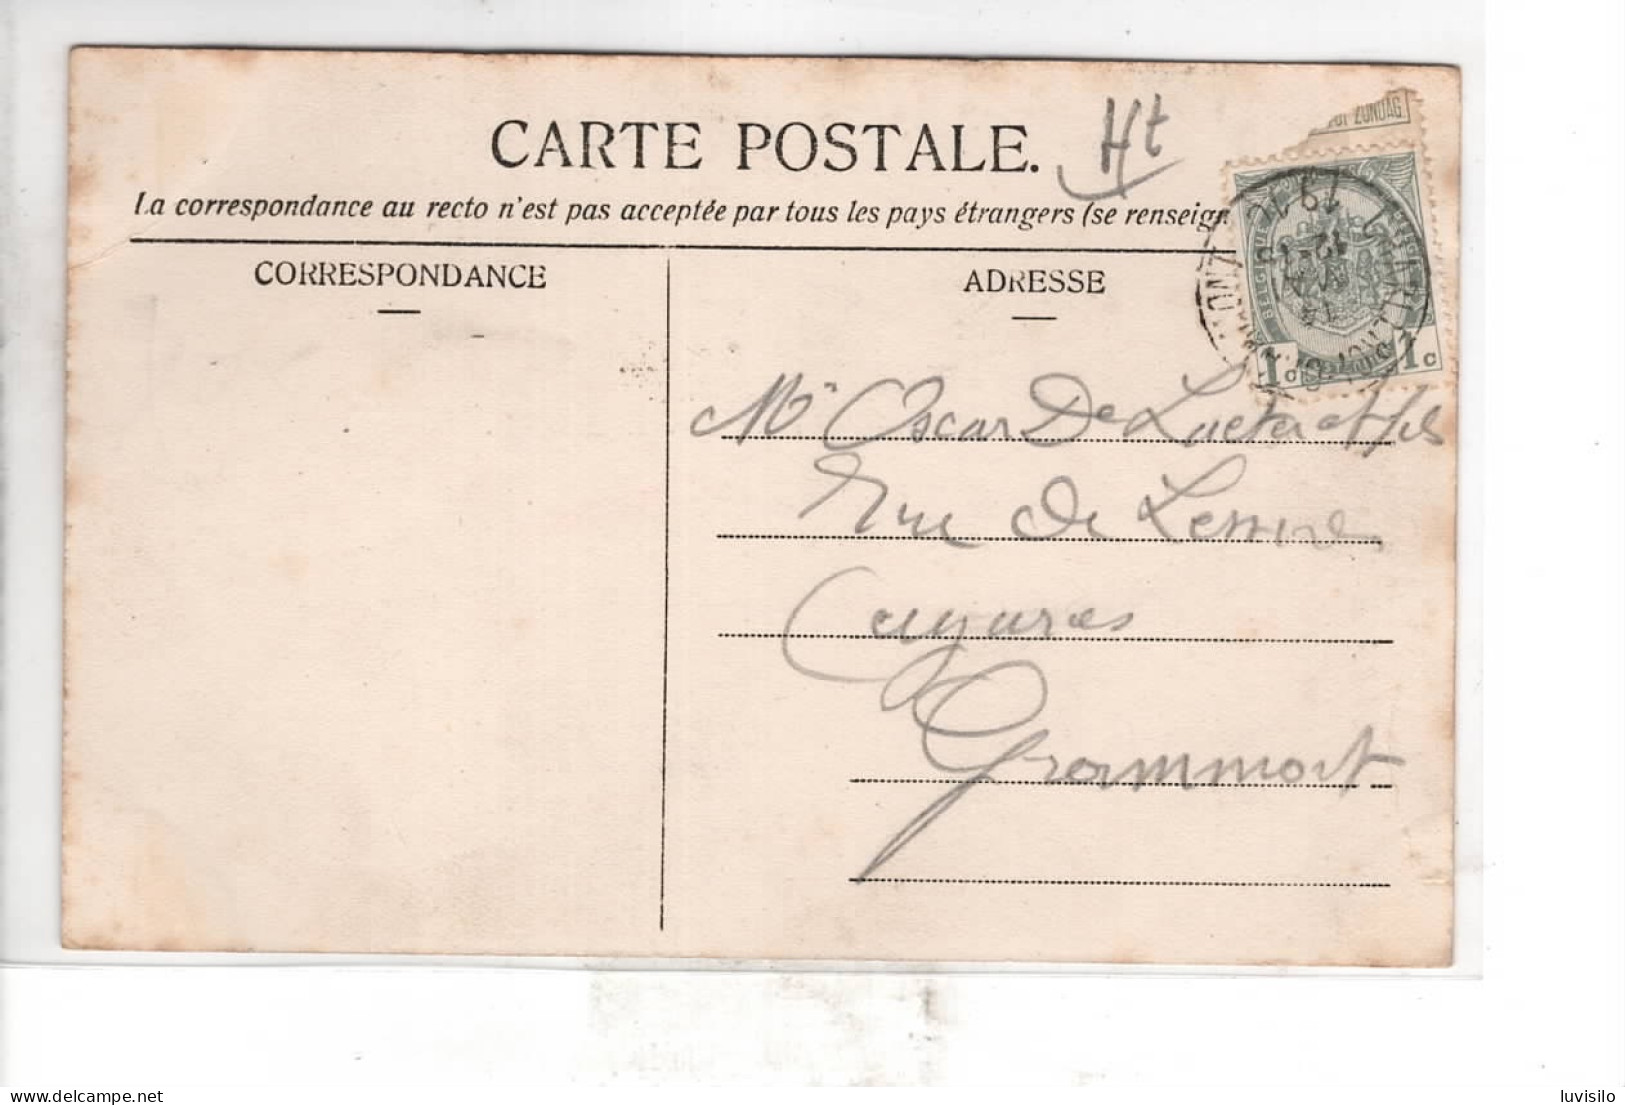 CARTE POSTALE.
Ht
La correspondance au recto n'est pas acceptée par tous les pays étrangers (se renseign
CORRESPONDANCE
ADRESSE
BELGIQUE
1c 1c
Mr Oscar De Laeter et fils
Rue de Lessines
Cigares
Grammont
luvisilo